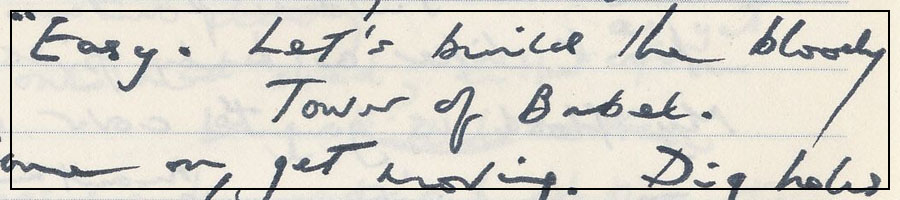 "Easy. Let's build the bloody
Tower of Babel.
ome on, get moving. Dig holes